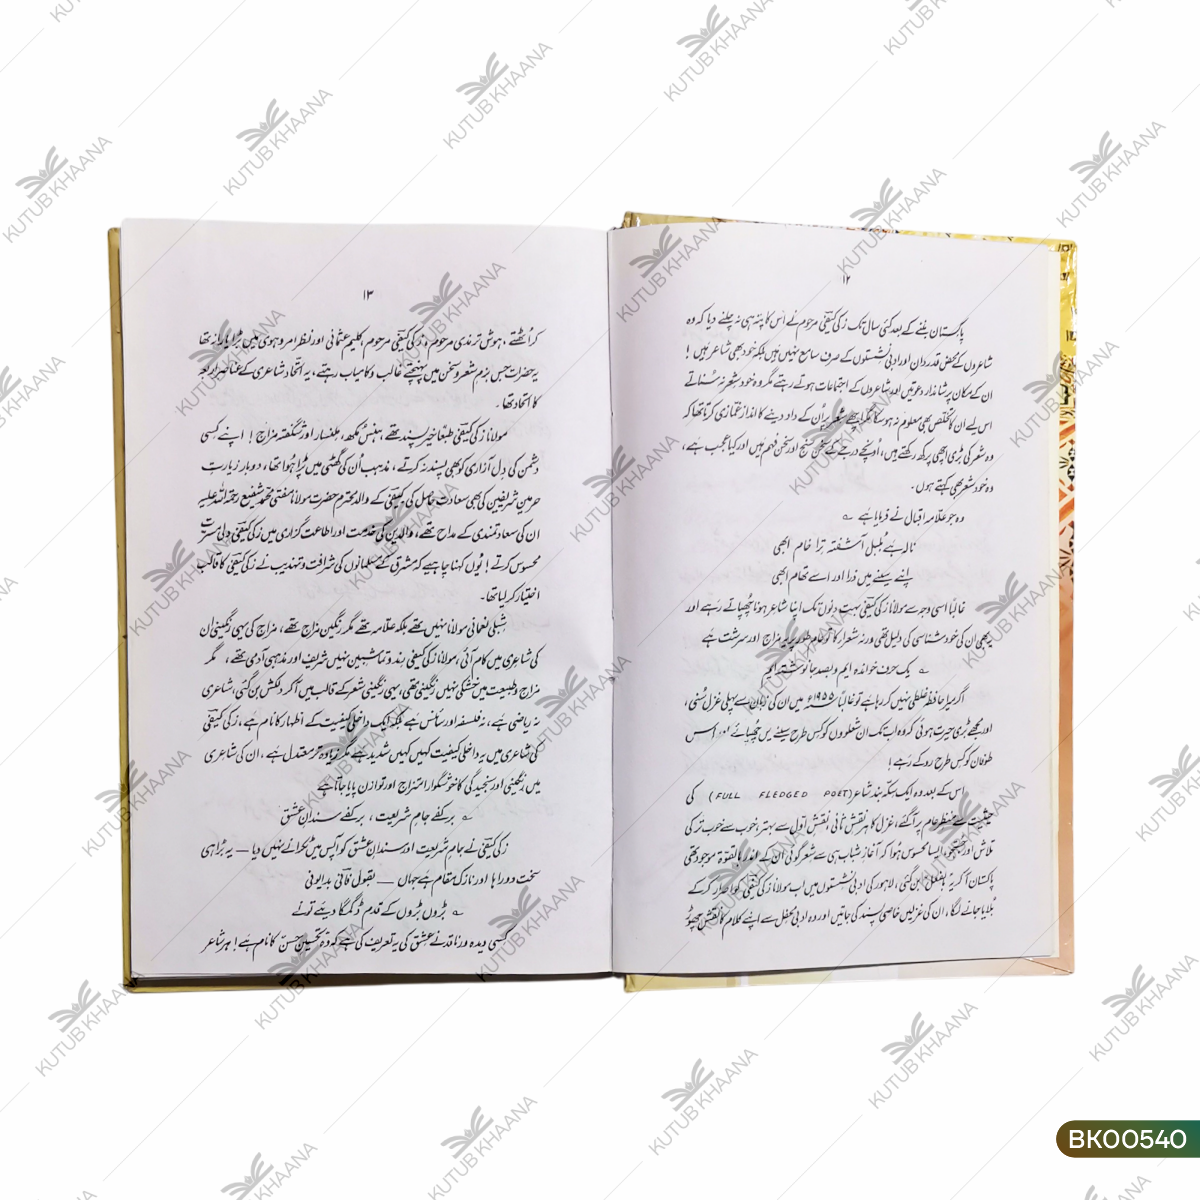 ۱۲
پاکستان بننے کے بعد کئی سال تک زکی کیفی مرحوم نے اس کا پتہ ہی نہ چلنے دیا کہ وہ
شاعروں کے محض قدردان اور ادبی نشستوں کے صرف سامع نہیں ہیں بلکہ خود بھی شاعر ہیں!
ان کے مکان پر شاندار دعوتیں اور شاعروں کے اجتماعات ہوتے رہتے مگر وہ خود شعر نہ سناتے
اس لیے ان کا تخلص بھی معلوم نہ ہو سکا مگر اچھے شعر پر ان کے داد دینے کا انداز غمازی کرتا تھا کہ
وہ شعر کی بڑی اچھی پرکھ رکھتے ہیں، اونچے درجے کے سخن سنج اور سخن فہم ہیں اور کیا عجب ہے،
وہ خود شعر بھی کہتے ہوں۔
وہ جو علامہ اقبال نے فرمایا ہے ؎
نالہ ہے بلبل آشفتہ ترا خام ابھی
اپنے سینے میں ذرا اور اسے تھام ابھی
غالباً اسی وجہ سے مولانا زکی کیفی بہت دنوں تک اپنا شاعر ہونا چھپاتے رہے اور
یہ بھی ان کی خود شناسی کی دلیل تھی ورنہ شعراء کا تو عام طور پر یہ مزاج اور سرشت ہے
؎ یک حرف خواندہ ایم و بصد جا نوشتہ ایم
اگر میرا حافظہ غلطی نہیں کر رہا ہے تو غالباً ۱۹۵۵ء میں ان کی زبان سے پہلی غزل سنی،
اور مجھے بڑی حیرت ہوئی کہ وہ اب تک ان شعلوں کو کس طرح سینے میں چھپائے اور اس
طوفان کو کس طرح روکے رہے!
اس کے بعد وہ ایک سکہ بند شاعر (FULL FLEDGED POET) کی
حیثیت سے منظر عام پر آ گئے، غزل کا ہر نقش ثانی، نقش اول سے بہتر، خوب سے خوب تر کی
تلاش اور جستجو، ایسا محسوس ہوا کہ آغاز شباب ہی سے شعر گوئی ان کے اندر بالقوۃ موجود تھی
پاکستان آ کر یہ بالفعل بن گئی، لاہور کی ادبی نشستوں میں اب مولانا زکی کیفی کو اصرار کر کے
بلایا جانے لگا، ان کی غزلیں خاصی پسند کی جاتیں اور وہ ادبی محفل سے اپنے کلام کا نقش چھوڑ
۱۳
کر اٹھتے، ہوش ترمذی مرحوم، زکی کیفی مرحوم، کلیم عثمانی اور نظر امروہوی میں بڑا یارانہ تھا
یہ حضرات جس بزم شعر و سخن میں پہنچتے غالب و کامیاب رہتے، یہ اتحاد شاعری کے عناصر اربعہ
کا اتحاد تھا۔
مولانا زکی کیفی طبعاً خیر پسند تھے، ہنس مکھ، ملنسار اور شگفتہ مزاج! اپنے کسی
دشمن کی دل آزاری کو بھی پسند نہ کرتے، مذہب ان کی گھٹی میں پڑا ہوا تھا، دوبار زیارت
حرمین شریفین کی بھی سعادت حاصل کی کیفی کے والد محترم حضرت مولانا مفتی محمد شفیع رحمۃ اللہ علیہ
ان کی سعادتمندی کے مداح تھے، والدین کی خدمت اور اطاعت گزاری میں زکی کیفی دلی مسرت
محسوس کرتے! یوں کہنا چاہیے کہ مشرق کے مسلمانوں کی شرافت و تہذیب نے زکی کیفی کا قالب
اختیار کر لیا تھا۔
شبلی نعمانی مولانا نہیں تھے بلکہ علامہ تھے مگر رنگین مزاج تھے، مزاج کی یہی رنگینی ان
کی شاعری میں کام آئی، مولانا زکی کیفی رند و تماشبین نہیں شریف اور مذہبی آدمی تھے، مگر
مزاج و طبیعت میں خشکی نہیں رنگینی تھی، یہی رنگینی شعر کے قالب میں آ کر دلکش بن گئی، شاعری
نہ ریاضی ہے، نہ فلسفہ اور سائنس ہے بلکہ ایک داخلی کیفیت کے اظہار کا نام ہے، زکی کیفی
کی شاعری میں یہ داخلی کیفیت کہیں کہیں شدید ہے مگر زیادہ تر معتدل ہے، ان کی شاعری
میں رنگینی اور سنجیدگی کا خوشگوار امتزاج اور توازن پایا جاتا ہے
؎ برکفے جام شریعت، برکفے سندان عشق
زکی کیفی نے جام شریعت اور سندان عشق کو آپس میں ٹکرانے نہیں دیا — یہ بڑا ہی
سخت دوراہا اور نازک مقام ہے جہاں — بقول فانی بدایونی
؎ بڑوں بڑوں کے قدم ڈگمگا دیئے تو نے
کسی دیدہ ور ناقد نے عشق کی یہ تعریف کی ہے کہ وہ تحسین حسن کا نام ہے! ہر شاعر
KUTUB KHAANA
BK00540